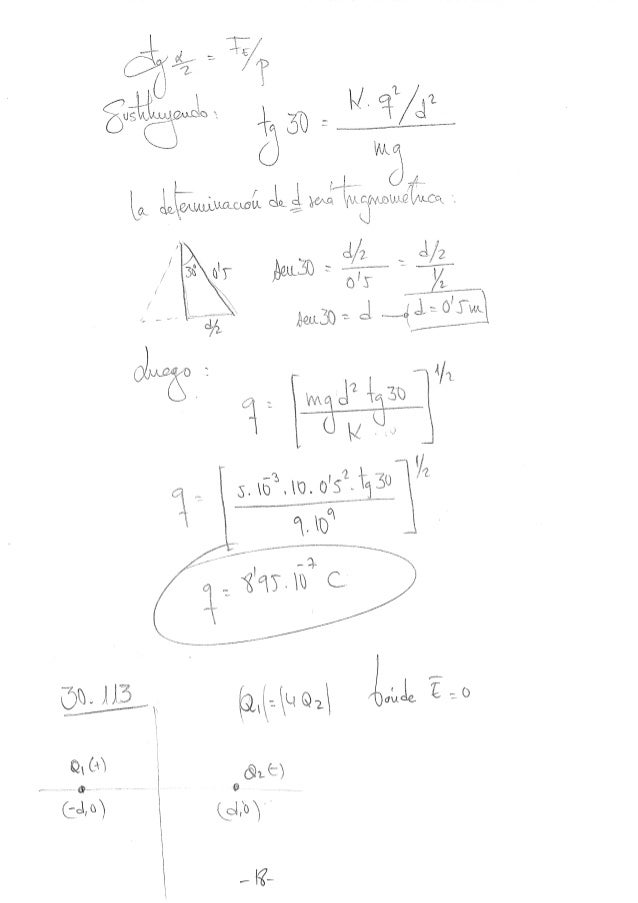 tg α/2 = FE/P
Sustituyendo: tg 30 = K. q²/d² / mg
la determinación de d será trignométrica:
30° 0'5 d/2
sen 30 = d/2 / 0'5 = d/2 / 1/2
sen 30 = d → d = 0'5 m
Luego:
q = [mg d² tg 30 / K]^1/2
q = [5. 10^-3 . 10. 0'5² . tg 30 / 9. 10^9]^1/2
q = 8'95. 10^-7 C
30. 113 |Q1| = |4 Q2| ¿dónde E̅ = 0
Q1 (+) Q2 (-)
(-d,0) (d,0)
-18-